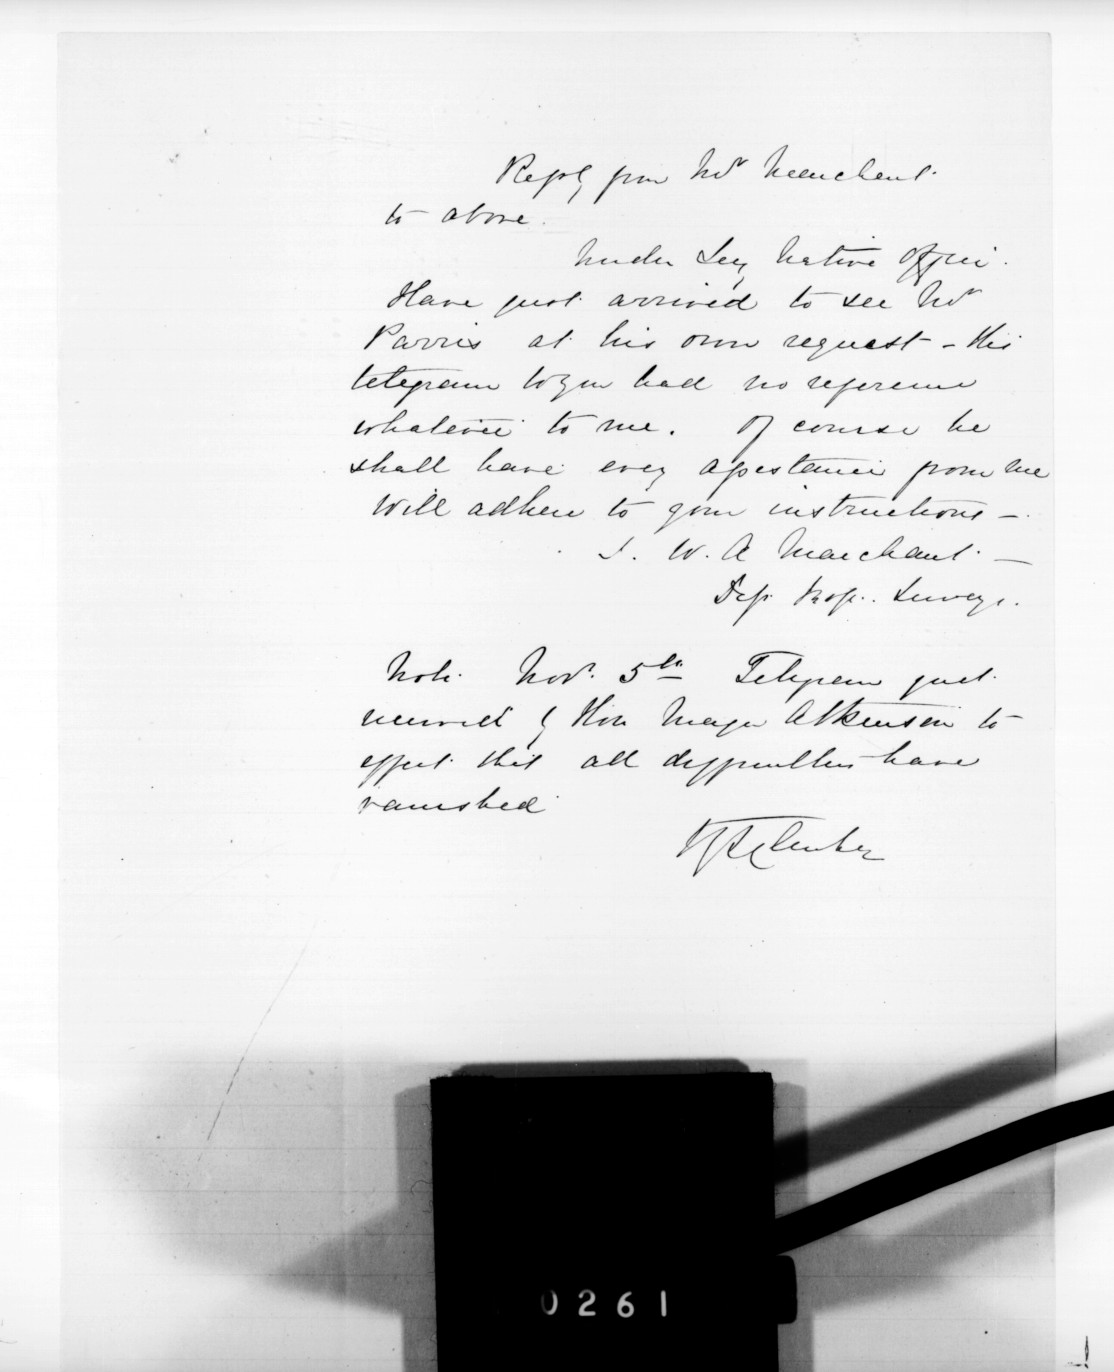 Reply from Mr Marchant
to above.
Under Secy Native Office.
Have just arrived to see Mr
Parris at his own request – His
telegram to you had no reference
whatever to me. Of course he
shall have every assistance from me
Will adhere to your instructions –
J. W. A Marchant. –
Dep. Insp. Surveys.
Note. Novr. 5th Telegram just
received by Hon Major Atkinson to
effect that all difficulties have
vanished
0261